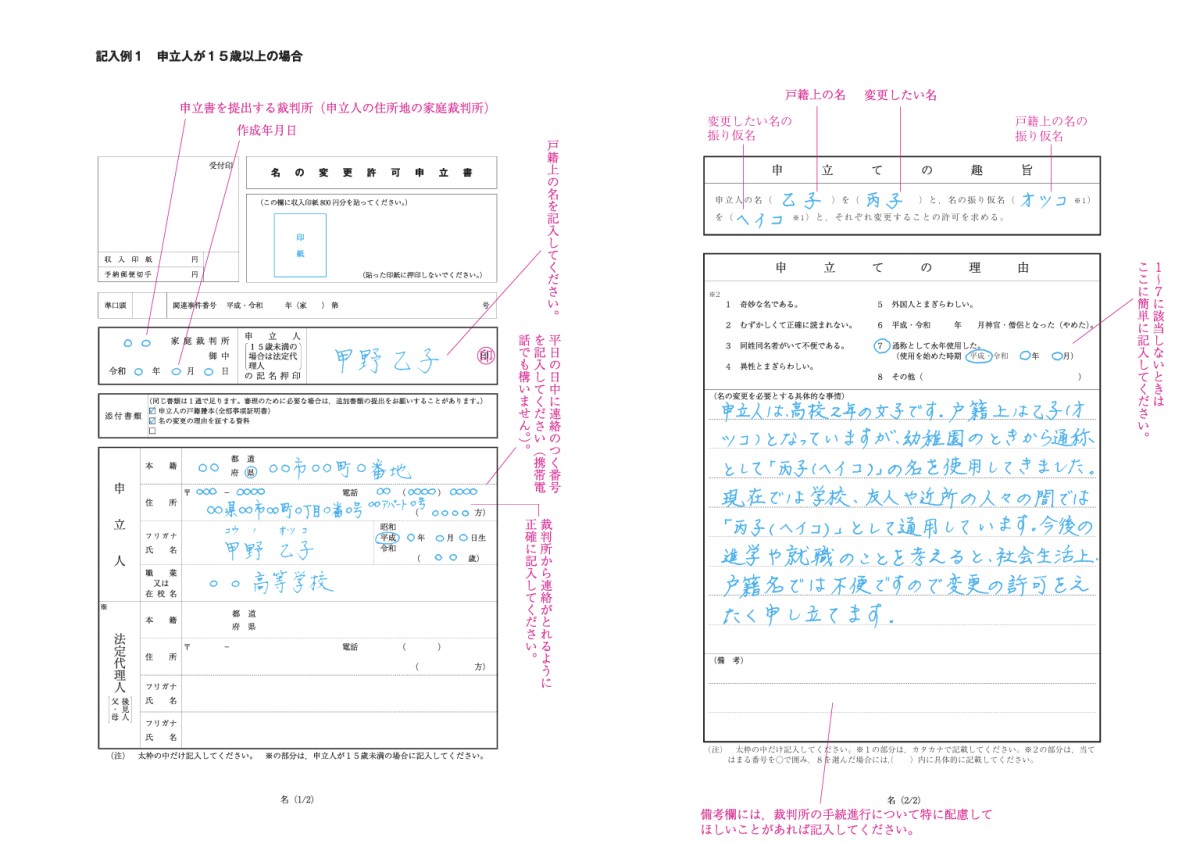 記入例1 申立人が15歳以上の場合
申立書を提出する裁判所（申立人の住所地の家庭裁判所）
作成年月日
受付印
名の変更許可申立書
（この欄に収入印紙800円分を貼ってください。）
印
紙
（貼った印紙に押印しないでください。）
収入印紙 円
予納郵便切手 円
戸籍上の名を記入してください。
準口頭 関連事件番号 平成・令和 年（家 ）第 号
○ ○ 家庭裁判所
御中
令和 ○ 年 ○ 月 ○ 日
申立人
15歳未満の
場合は法定代
理人
の記名押印
甲野乙子 印
添付書類
（同じ書類は1通で足ります。審理のために必要な場合は，追加書類の提出をお願いすることがあります。）
☑ 申立人の戸籍謄本(全部事項証明書)
☑ 名の変更の理由を証する資料
□
平日の日中に連絡のつく番号
を記入してください（携帯電
話でも構いません。）。
申立人
本籍
都 道
府 県
○○ ○○市○○町○番地
住所
〒 ○○○ － ○○○○ 電話 ○○ （○○○○） ○○○○
○○県○○市○○町○丁目○番○号 ○○アパート○号
（ ○○○○ 方）
フリガナ
氏名
コウ ノ オツ コ
甲野 乙子
昭和
平成 ○年 ○月 ○日生
令和
（ ○○ 歳）
職業
又は
在校名
○ ○ 高等学校
裁判所から連絡がとれるように
正確に記入してください。
※
法定代理人
父・母
後見人
本籍
都 道
府 県
住所
〒 － 電話 （ ）
（ 方）
フリガナ
氏名
フリガナ
氏名
（注） 太枠の中だけ記入してください。 ※の部分は，申立人が15歳未満の場合に記入してください。
名（1/2）
戸籍上の名 変更したい名
変更したい名の
振り仮名
戸籍上の名の
振り仮名
申立ての趣旨
申立人の名（ 乙子 ）を（ 丙子 ）と，名の振り仮名（ オツコ ※1）
を（ ヘイコ ※1）と，それぞれ変更することの許可を求める。
申立ての理由
※2
1 奇妙な名である。
2 むずかしくて正確に読まれない。
3 同姓同名者がいて不便である。
4 異性とまぎらわしい。
5 外国人とまぎらわしい。
6 平成・令和 年 月神官・僧侶となった（やめた）。
7 通称として永年使用した。
（使用を始めた時期 平成・令和 ○年 ○月）
8 その他（ ）
1～7に該当しないときは
ここに簡単に記入してください。
（名の変更を必要とする具体的な事情）
申立人は、高校2年の女子です。戸籍上は乙子(オ
ツコ)となっていますが、幼稚園のときから通称
として「丙子(ヘイコ)」の名を使用してきました。
現在では学校、友人や近所の人々の間では
「丙子(ヘイコ)」として通用しています。今後の
進学や就職のことを考えると、社会生活上、
戸籍名では不便ですので変更の許可をえ
たく申し立てます。
（備 考）
（注） 太枠の中だけ記入してください。※1の部分は，カタカナで記載してください。※2の部分は，当て
はまる番号を○で囲み，8を選んだ場合には，（ ）内に具体的に記載してください。
名（2/2）
備考欄には，裁判所の手続進行について特に配慮して
ほしいことがあれば記入してください。